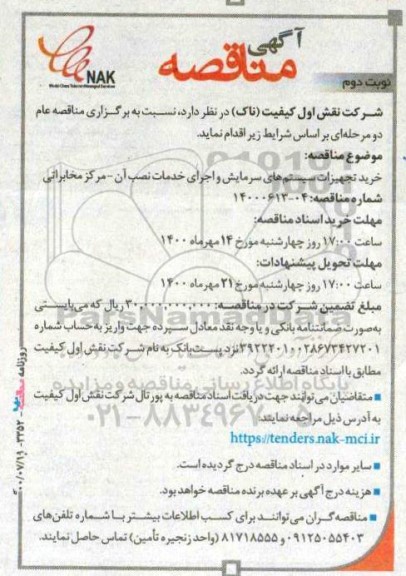 آگهی
مناقصه
NAK
World Class Telecom Managed Services
نوبت دوم
شرکت نقش اول کیفیت (ناک) در نظر دارد، نسبت به برگزاری مناقصه عام
دو مرحله‌ای بر اساس شرایط زیر اقدام نماید.
موضوع مناقصه:
خرید تجهیزات سیستم‌های سرمایش و اجرای خدمات نصب آن - مرکز مخابراتی
شماره مناقصه: ۰۴-۱۴۰۰۰۶۱۳
مهلت خرید اسناد مناقصه:
ساعت ۱۷:۰۰ روز چهارشنبه مورخ ۱۴ مهرماه ۱۴۰۰
مهلت تحویل پیشنهادات:
ساعت ۱۷:۰۰ روز چهارشنبه مورخ ۲۱ مهرماه ۱۴۰۰
مبلغ تضمین شرکت در مناقصه: ۳۰,۰۰۰,۰۰۰,۰۰۰ ریال که می‌بایستی
به‌صورت ضمانتنامه بانکی و یا وجه نقد معادل سپرده جهت واریز به حساب شماره
نزد پست بانک به نام شرکت نقش اول کیفیت
مطابق با اسناد مناقصه ارائه گردد.
■ متقاضیان می‌توانند جهت دریافت اسناد مناقصه به پورتال شرکت نقش اول کیفیت
به آدرس ذیل مراجعه نمایند:
https://tenders.nak-mci.ir
■ سایر موارد در اسناد مناقصه درج گردیده است.
■ هزینه درج آگهی بر عهده برنده مناقصه خواهد بود.
■ مناقصه‌گران می‌توانند برای کسب اطلاعات بیشتر با شماره تلفن‌های
۰۹۱۲۵۰۵۵۴۰۳ و ۸۱۷۱۸۵۵۵ (واحد زنجیره تأمین) تماس حاصل نمایند.
ParsNamadData
پایگاه اطلاع رسانی مناقصه و مزایده
۰۲۱-۸۸۳۴۹۶۷۰
روزنامه
۳۳۵۲ - ۰۰/۰۷/۱۰